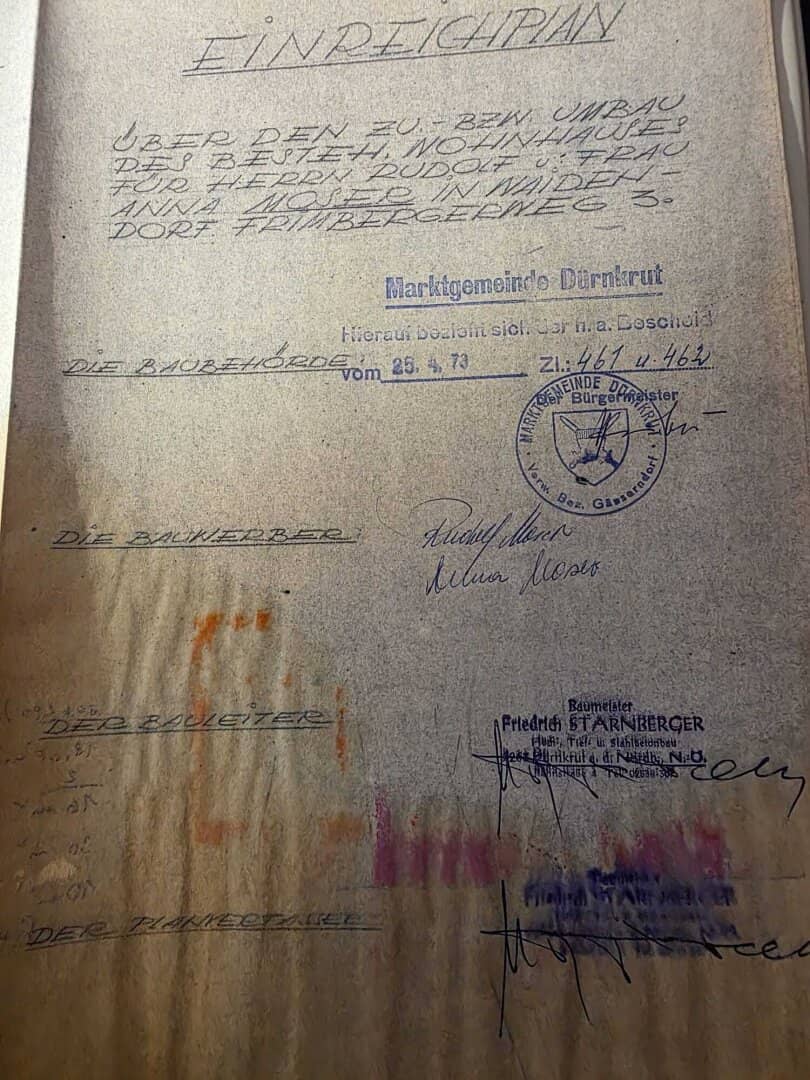 EINREICHPLAN
ÜBER DEN ZU.- BZW. UMBAU
DES BESTEH. WOHNHAUSES
FÜR HERRN RUDOLF u. FRAU
ANNA MOSER IN WAIDEN-
DORF FRIMBERGERWEG 3.
Marktgemeinde Dürnkrut
Hierauf bezieht sich der h. a. Bescheid
DIE BAUBEHÖRDE:
vom 25. 4. 73 Zl.: 461 u. 462
Der Bürgermeister
MARKTGEMEINDE DÜRNKRUT
Verw. Bez. Gänserndorf
DIE BAUWERBER:
Rudolf Moser
Anna Moser
DER BAULEITER
Baumeister
Friedrich STARNBERGER
Hoch-, Tief- u. Stahlbetonbau
Dürnkrut a. d. Nordb., N.Ö.
DER PLANVERFASSER
Friedrich STARNBERGER